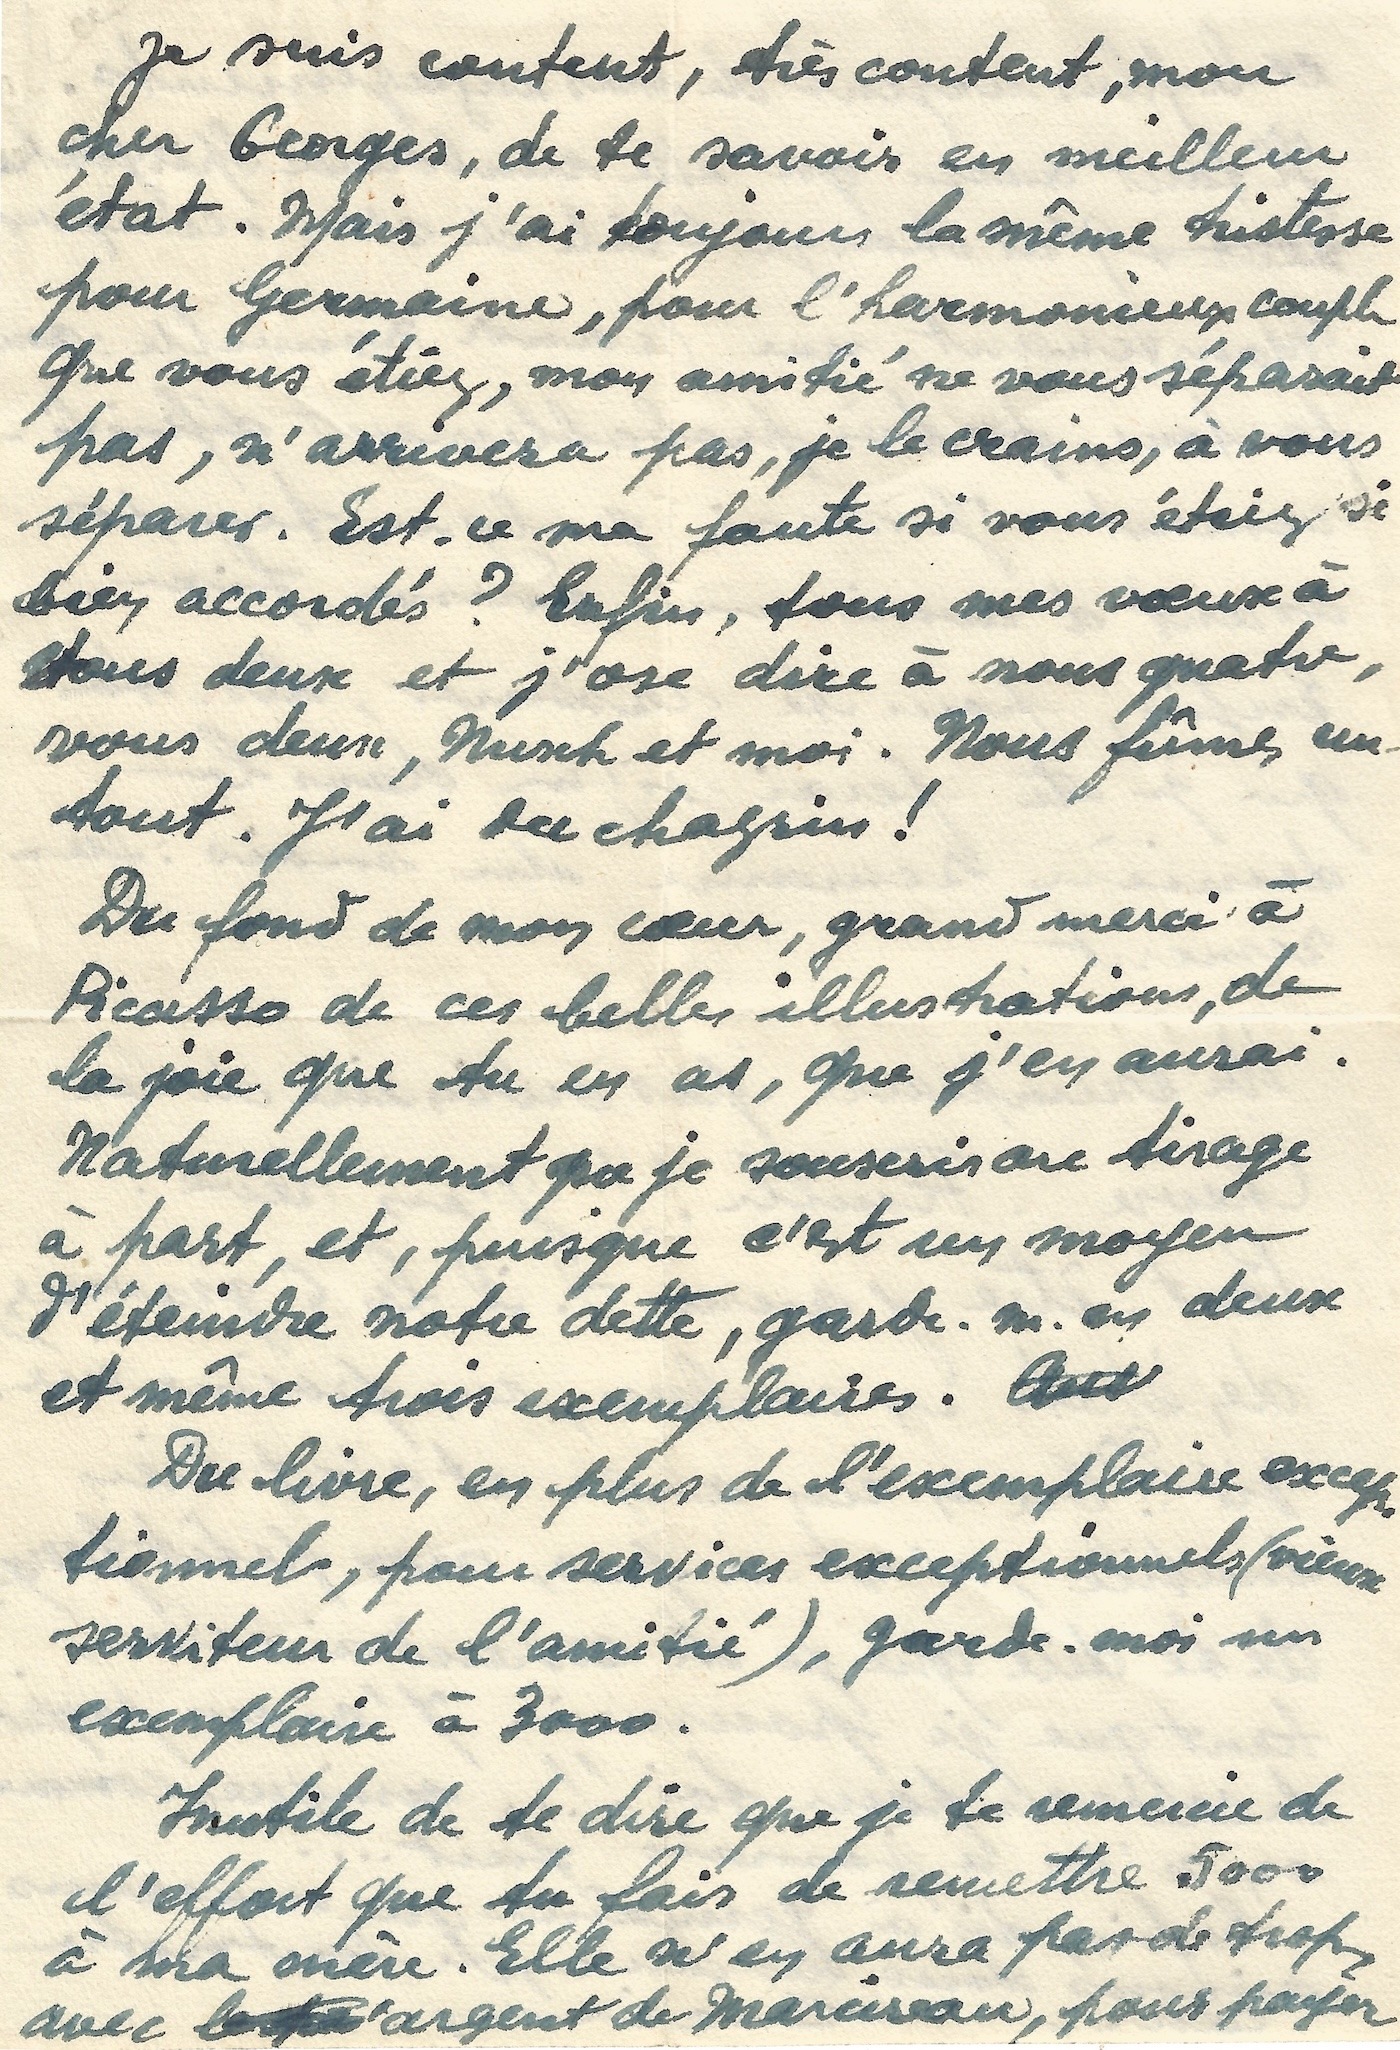 Je suis content, très content, mon
cher Georges, de te savoir en meilleur
état. Mais j'ai toujours la même tristesse
pour Germaine, pour l'harmonieux couple
que vous étiez, mon amitié ne vous séparait
pas, n'arrivera pas, je le crains, à vous
séparer. Est-ce ma faute si vous étiez si
bien accordés ? Enfin, tous mes vœux à
tous deux et j'ose dire à nous quatre,
vous deux, Nusch et moi. Nous fûmes un
tout. J'ai du chagrin !
Du fond de mon cœur, grand merci à
Picasso de ces belles illustrations, de
la joie que tu en as, que j'en aurai.
Naturellement que je souscris au tirage
à part, et, puisque c'est un moyen
d'éteindre notre dette, garde-m'en deux
et même trois exemplaires.
Du livre, en plus de l'exemplaire excep-
tionnel, pour services exceptionnels (vieux
serviteur de l'amitié), garde-moi un
exemplaire à 3000.
Inutile de te dire que je te remercie de
l'effort que tu fais de remettre 5000
à ma mère. Elle n'en aura pas de trop,
avec l'argent de Marcireau, pour payer